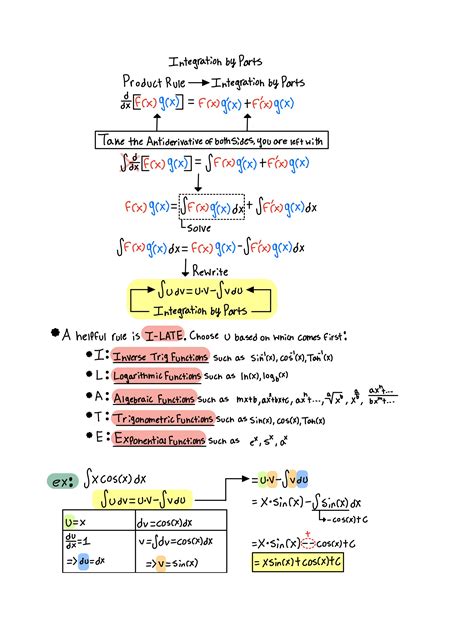 Integration by Parts
Product Rule → Integration by Parts
d/dx [f(x)g(x)] = f(x)g'(x) + f'(x)g(x)
Take the Antiderivative of both sides, you are left with
∫ d/dx [f(x)g(x)] = ∫ f(x)g'(x) + f'(x)g(x)
f(x)g(x) = ∫ f(x)g'(x)dx + ∫ f'(x)g(x)dx
Solve
∫ f(x)g'(x)dx = f(x)g(x) - ∫ f'(x)g(x)dx
Rewrite
∫ u dv = u·v - ∫ v du
Integration by Parts
• A helpful rule is I-LATE. Choose u based on which comes first:
• I: Inverse Trig Functions such as Sin⁻¹(x), cos⁻¹(x), Tan⁻¹(x)
• L: Logarithmic Functions such as ln(x), log_b(x)
• A: Algebraic Functions such as mx+b, ax²+bx+c, axⁿ+...,
• T: Trigonometric Functions such as Sin(x), cos(x), Tan(x)
• E: Exponential Functions such as eˣ, 5ˣ, aˣ
ex: ∫ x cos(x) dx
∫ u dv = u·v - ∫ v du
u = x
dv = cos(x)dx
du/dx = 1
v = ∫ dv = cos(x)dx
=> du = dx
=> v = sin(x)
= u·v - ∫ v du
= x·sin(x) - ∫ sin(x) dx
→ -cos(x)+c
= x·sin(x) - - cos(x)+c
+
= x sin(x) + cos(x) + c